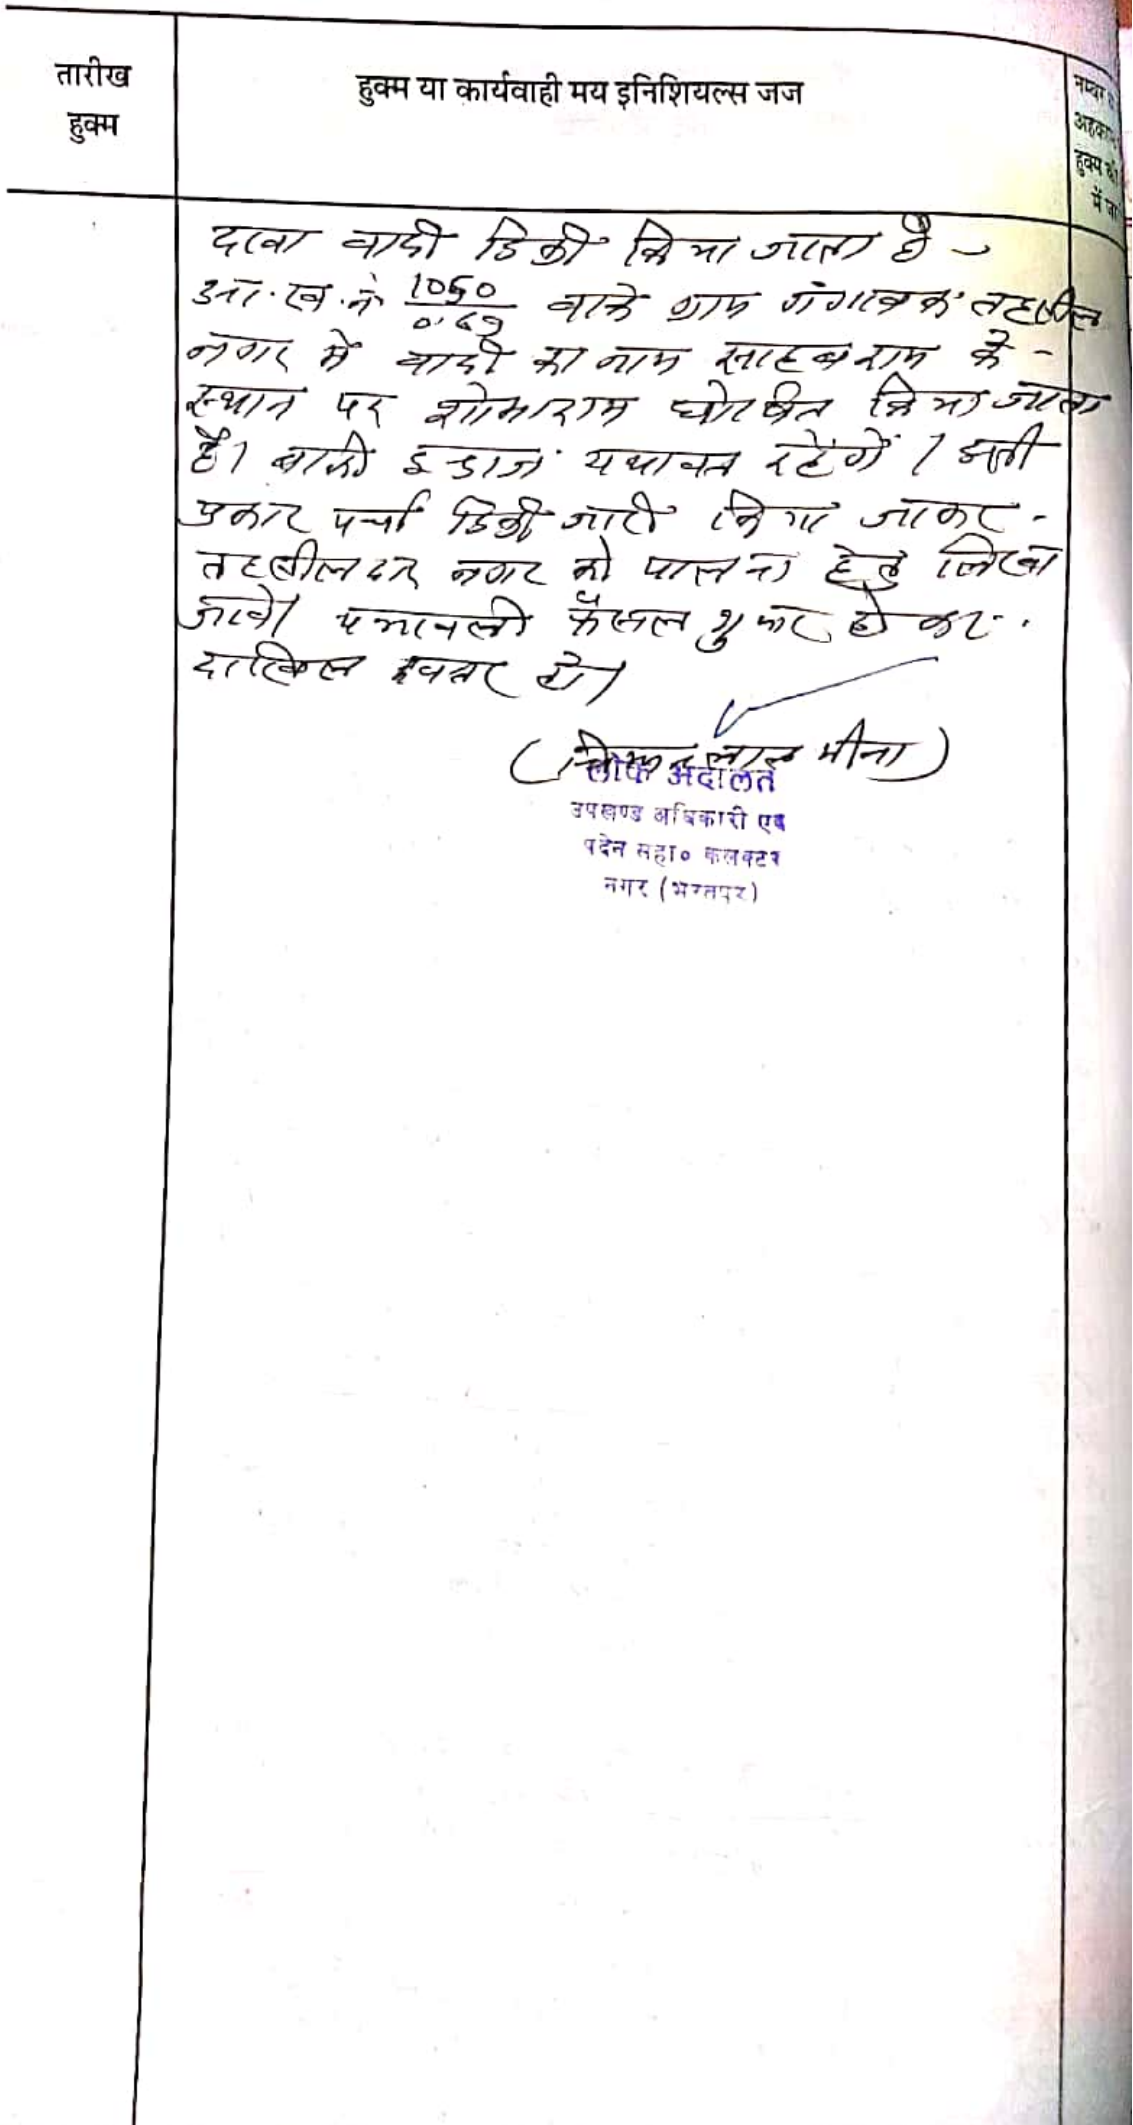 तारीख
हुक्म
हुक्म या कार्यवाही मय इनिशियल्स जज
नम्बर
अहकाम
हुक्म की
में जा
दावा वादी डिक्री किया जाता है -
आ.ख.नं 1050/0.69 वाके ग्राम तहसील
नगर में वादी का नाम साहबराम के -
स्थान पर शोभाराम घोषित किया जाता
है। बाकी इन्द्राज यथावत रहेंगें। इसी
प्रकार पर्चा डिक्री जारी किया जाकर -
तहसीलदार नगर को पालना हेतु लिखा
जावे। पत्रावली फैसल शुमार होकर
दाखिल दफ्तर हो।
( लाल मीना )
लोक अदालत
उपखण्ड अधिकारी एवं
पदेन सहा० कलक्टर
नगर (भरतपुर)